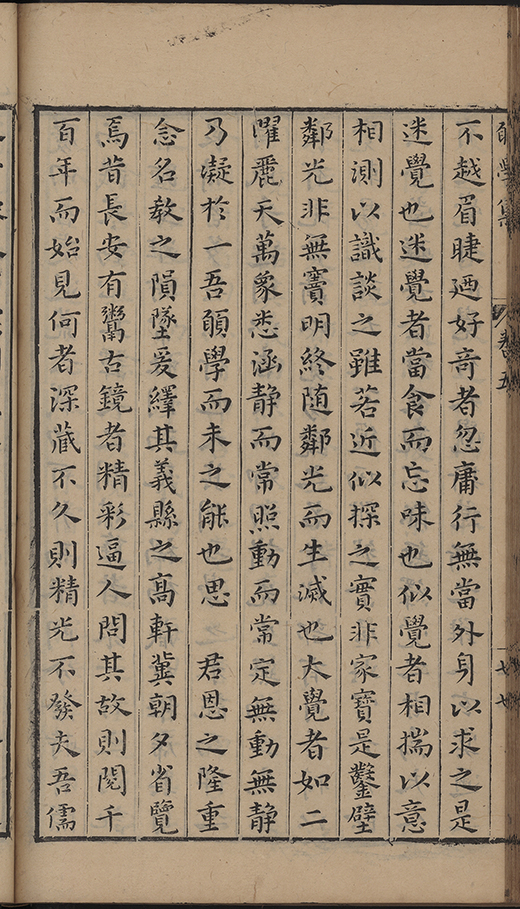 願學集 卷五
不越眉睫廼好竒者忽庸行無當外身以求之是
迷覺也迷覺者當食而忘味也似覺者相揣以意
相測以識談之雖若近似探之實非家寶是鑿壁
鄰光非無竇明終随鄰光而生滅也大覺者如二
曜麗天萬象悉涵静而常照動而常定無動無静
乃凝於一吾願學而未之能也思 君恩之隆重
念名教之隕墜爰繹其義縣之髙軒冀朝夕省覽
焉昔長安有鬻古鏡者精彩逼人問其故則閱千
百年而始見何者深藏不久則精光不發夫吾儒